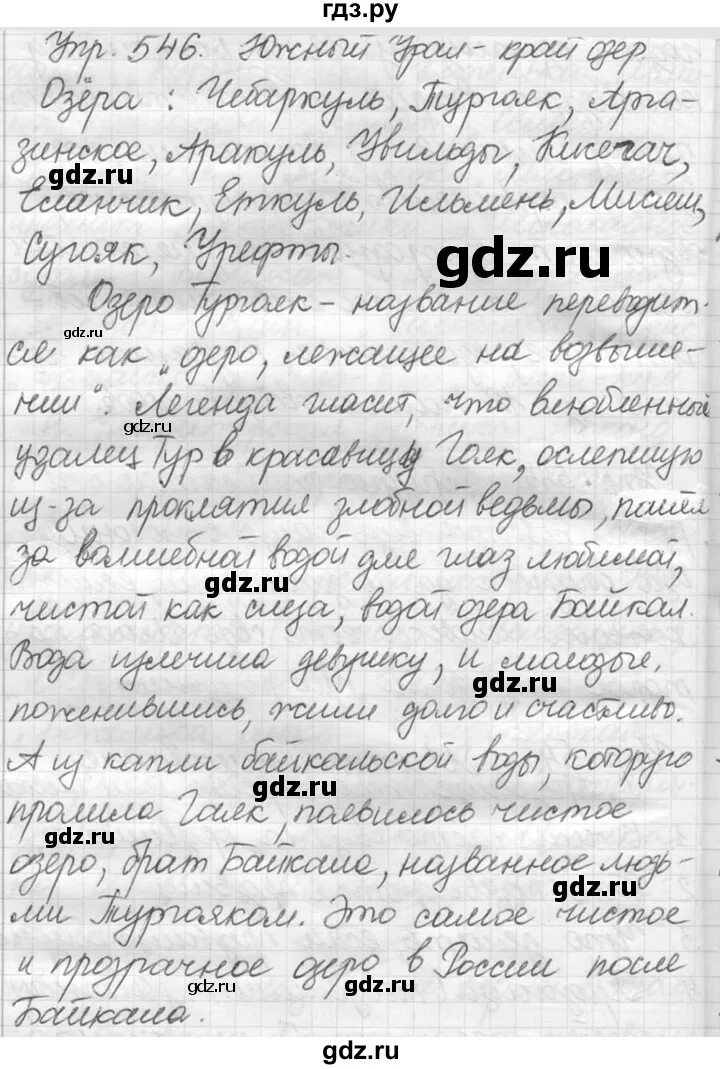 гдз.ру
Упр. 546. Южный Урал - край озер.
Озёра : Чебаркуль, Тургояк, Арга-
зинское, Аракуль, Увильды, Кисегач,
gdz.ru
Еланчик, Еткуль, Ильмень, Мисяш,
Сугояк, Урефты.
gdz.ru
Озеро Тургояк - название переводит-
gdz.ru
ся как „озеро, лежащее на возвыше-
gdz.ru
нии". Легенда гласит, что влюбленный
gdz.ru
удалец Тур в красавицу Гояк, ослепшую
из-за проклятия злобной ведьмы, пошёл
за волшебной водой для глаз любимой,
gdz.ru
чистой как слеза, водой озера Байкал.
Вода излечила девушку, и молодые,
gdz.ru
поженившись, жили долго и счастливо.
А из капли байкальской воды, которую
gdz.ru
пролила Гаяк, появилось чистое
gdz.ru
озеро, брат Байкала, названное людь-
gdz.ru
ми Тургояком. Это самое чистое
и прозрачное озеро в России после
gdz.ru
gdz.ru
Байкала.
gdz.ru